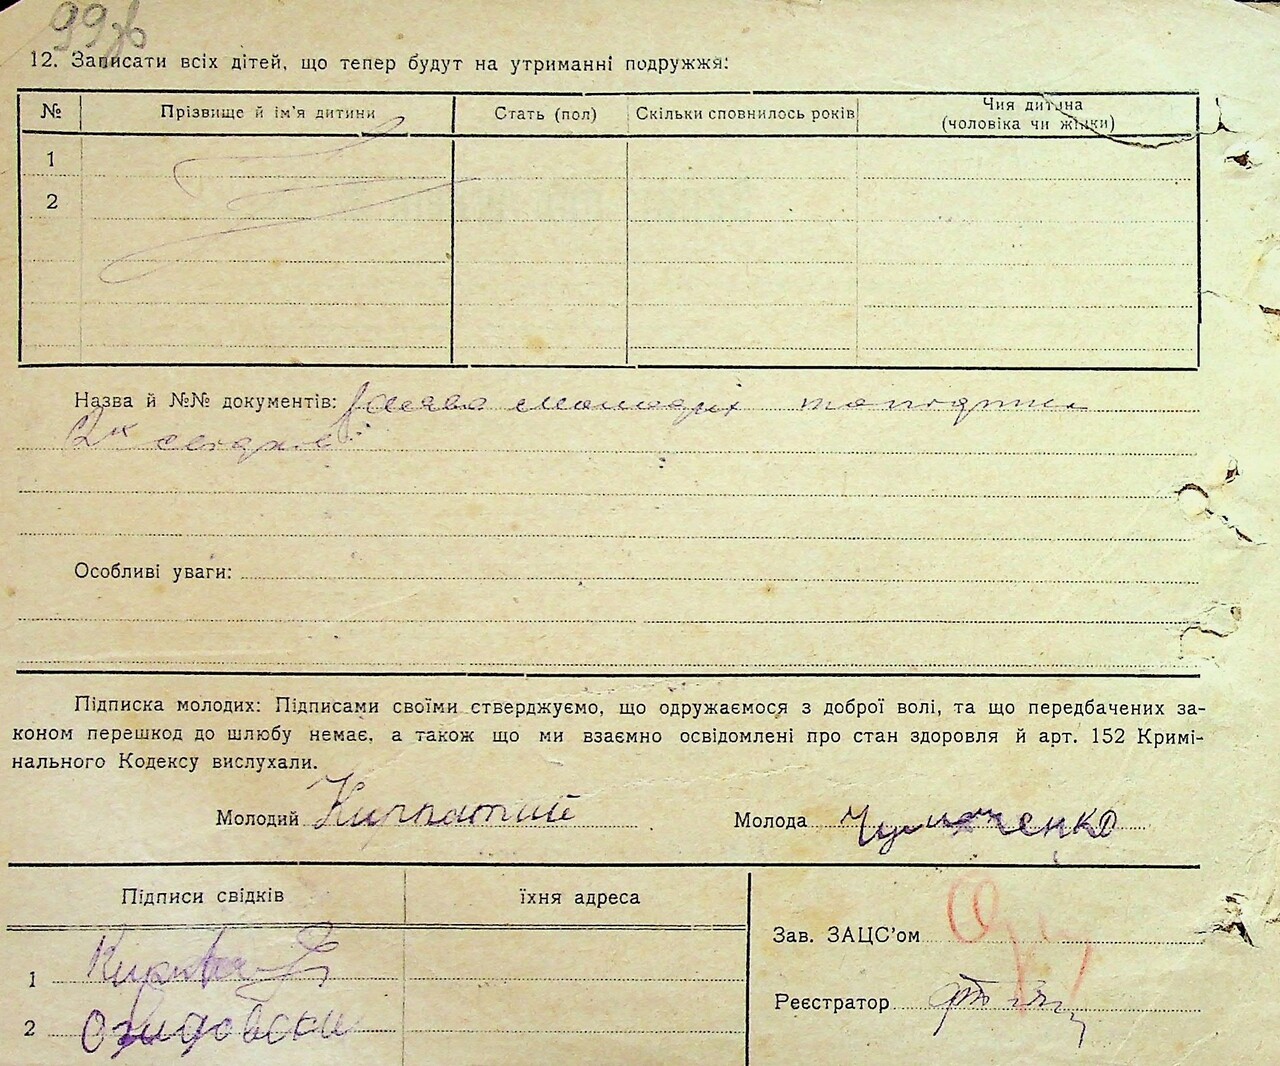 99зв
12. Записати всіх дітей, що тепер будут на утриманні подружжя:
№ Прізвище й ім'я дитини Стать (пол) Скільки сповнилось років Чия дитина
(чоловіка чи жінки)
1
2
Назва й №№ документів: Заява молодих та підписи
2х свідків
Особливі уваги:
Підписка молодих: Підписами своїми стверджуємо, що одружаємося з доброї волі, та що передбачених за-
коном перешкод до шлюбу немає, а також що ми взаємно освідомлені про стан здоровля й арт. 152 Кримі-
нального Кодексу вислухали.
Молодий Молода Чумаченко
Підписи свідків їхня адреса
Зав. ЗАЦС'ом
1
Реєстратор
2